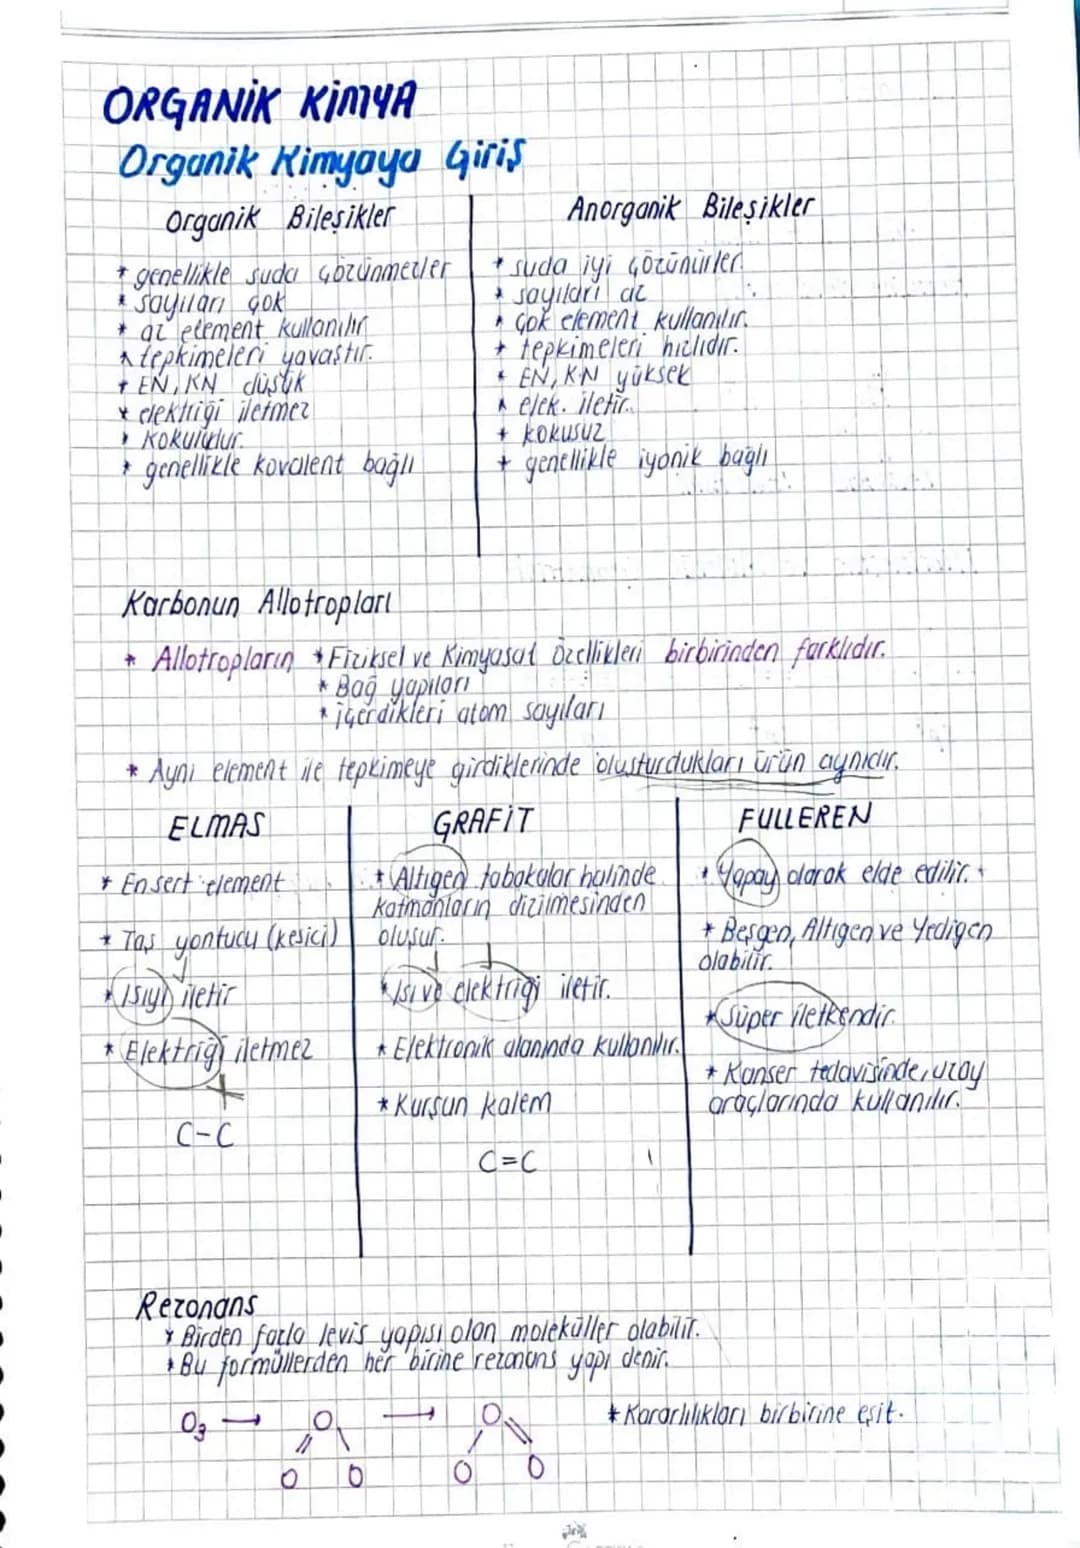 ORGANİK KİMYA
Organik Kimyaya Giriş
Organik Bileşikler
* genellikle suda çözünmezler
* sayıları çok
* az element kullanılır
* tepkimeleri yavaştır.
* EN, KN düşük
* elektriği iletmez
* Kokuludur.
* genellikle kovalent bağlı
Anorganik Bileşikler
* suda iyi çözünürler.
* sayıları az
* çok element kullanılır.
* tepkimeleri hızlıdır.
* EN, KN yüksek
* elek. iletir.
* kokusuz
* genellikle iyonik bağlı
Karbonun Allotropları
* Allotropların * Fiziksel ve Kimyasal Özellikleri birbirinden farklıdır.
* Bağ yapıları
* içerdikleri atom sayıları
* Aynı element ile tepkimeye girdiklerinde oluşturdukları ürün aynıdır.
ELMAS
* En sert element
* Taş yontucu (kesici)
* Isıyı iletir
* Elektriği iletmez
C-C
GRAFİT
* Altıgen tabakalar halinde
katmanların dizilmesinden
oluşur.
* Isı ve elektriği iletir.
* Elektronik alanında kullanılır.
* Kurşun kalem
C=C
FULLEREN
* Yapay olarak elde edilir.
* Beşgen, Altıgen ve Yedigen
olabilir.
* Süper iletkendir.
* Kanser tedavisinde, uzay
araçlarında kullanılır.
Rezonans
* Birden fazla levis yapısı olan moleküller olabilir.
* Bu formüllerden her birine rezonans yapı denir.
O₃ → O → O
O O O O
* Kararlılıkları birbirine eşit.